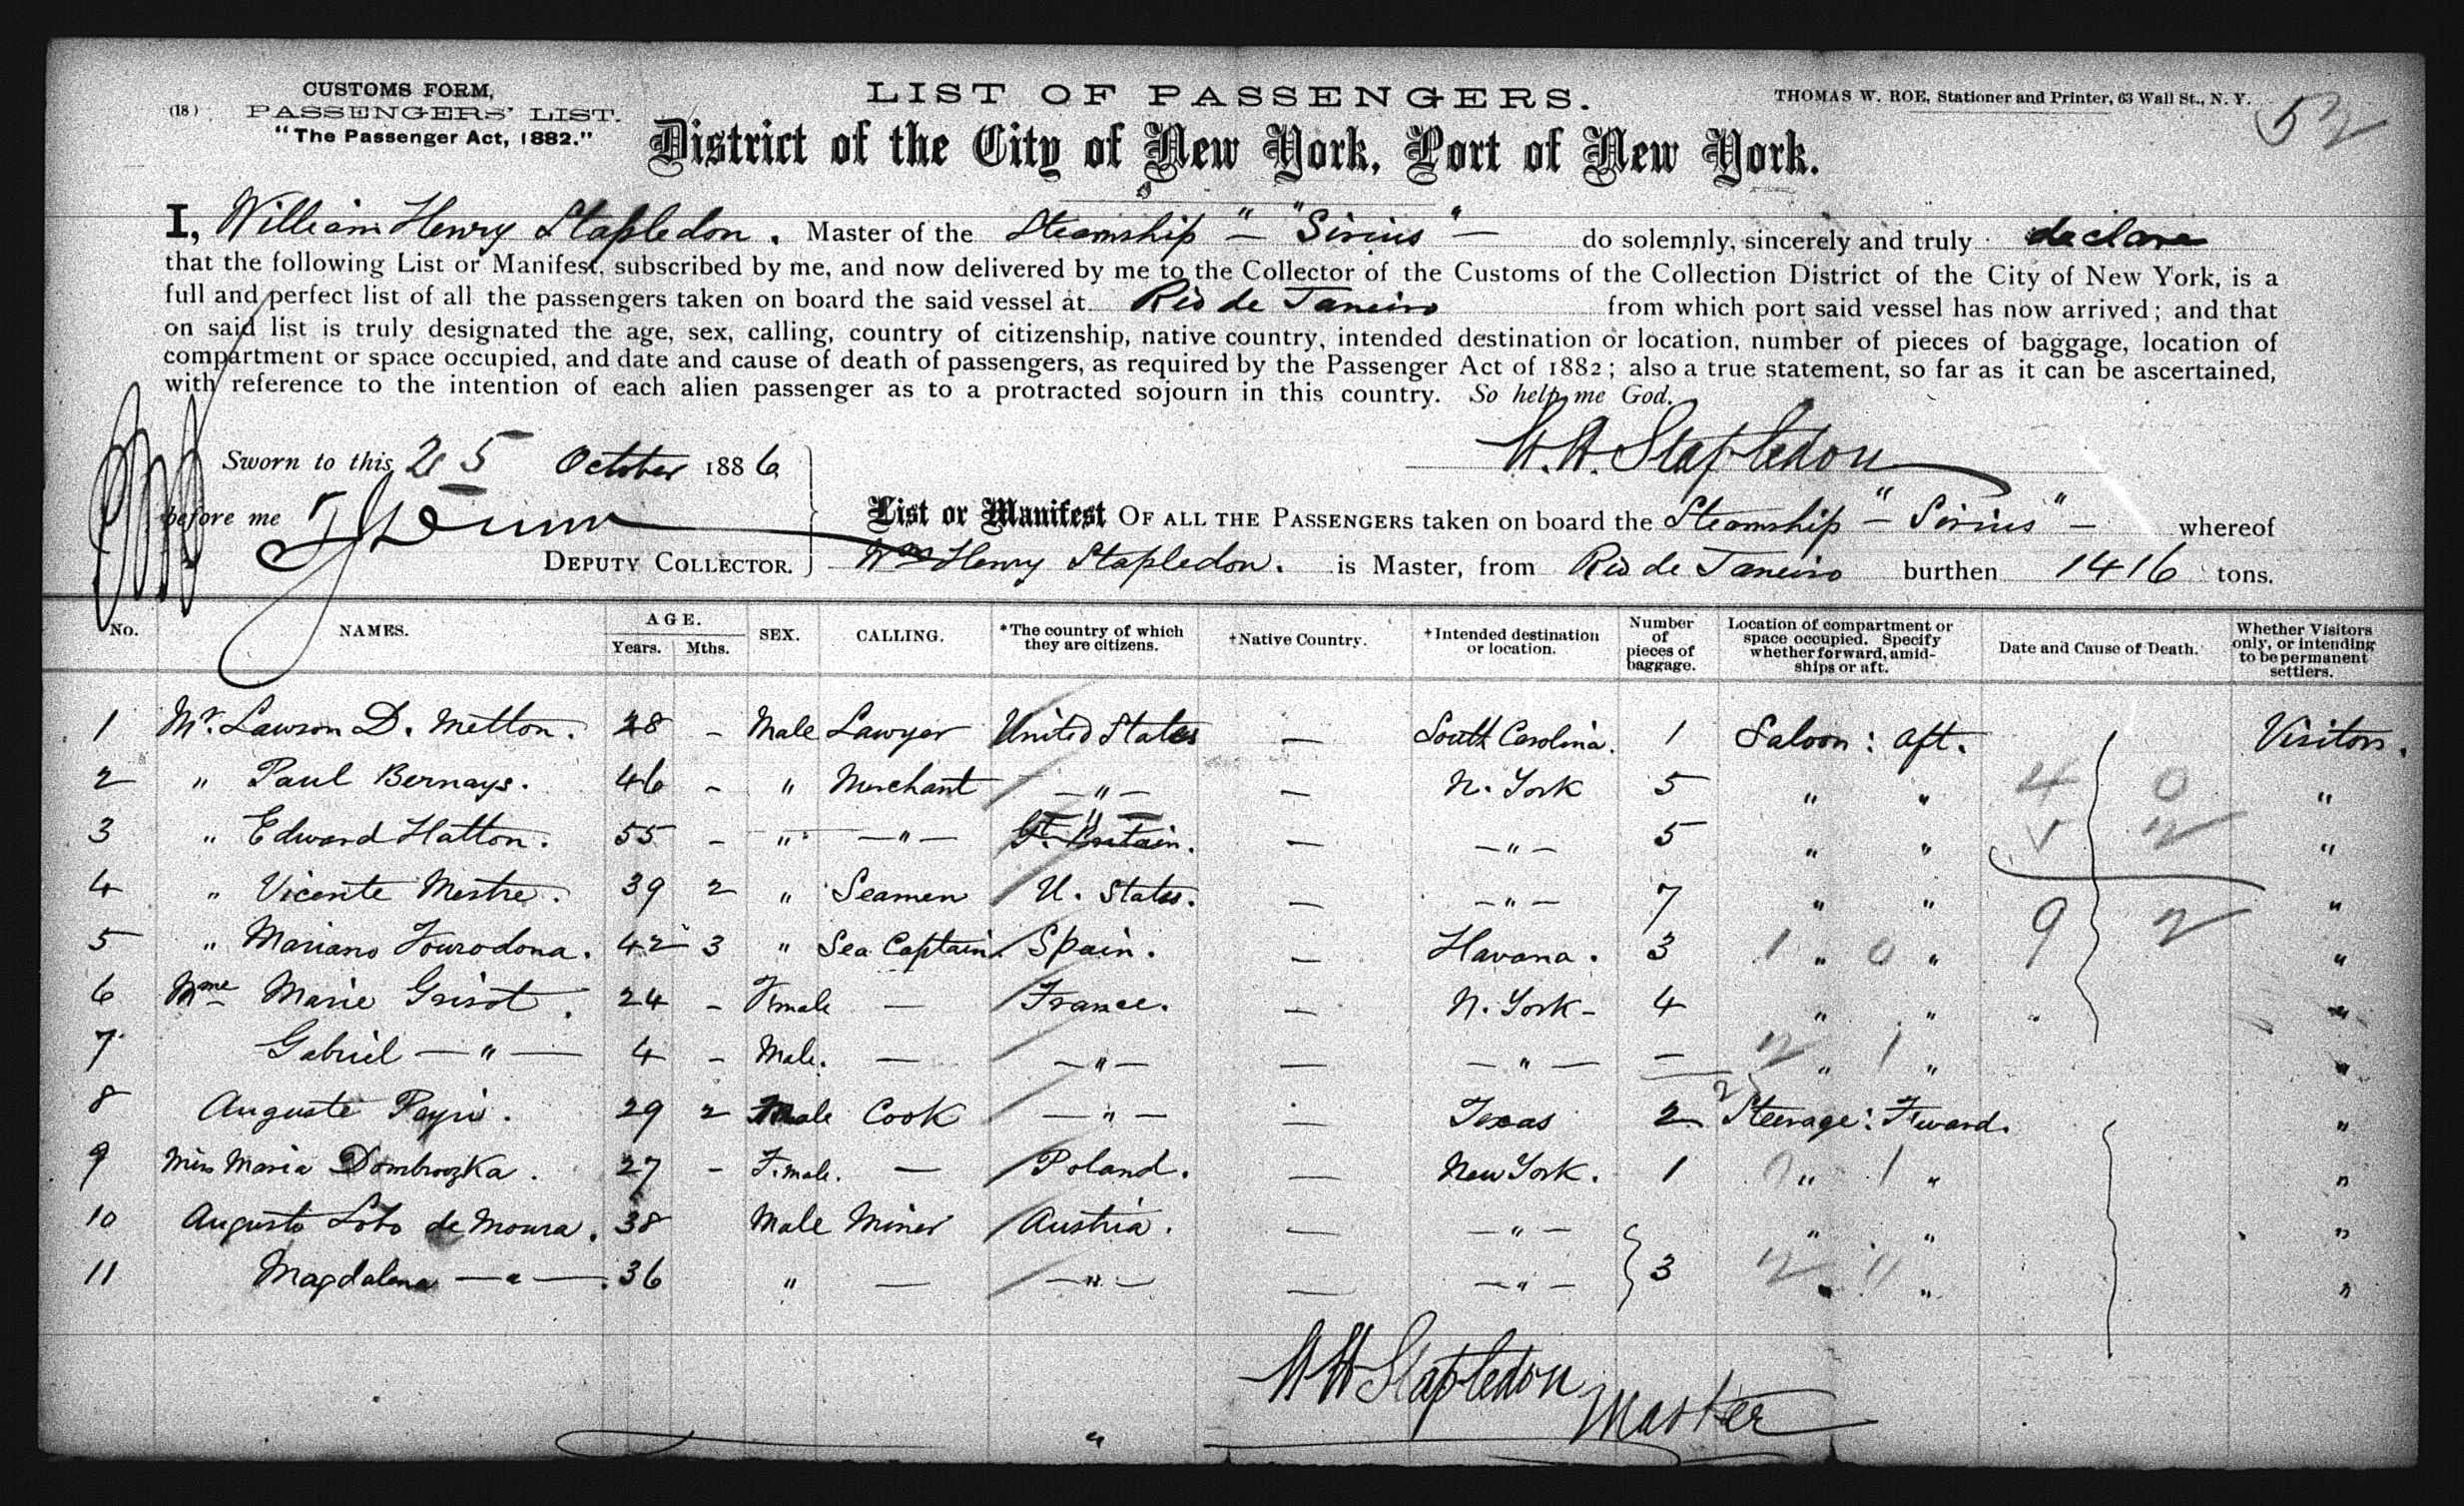 CUSTOMS FORM,
(18) PASSENGERS' LIST.
"The Passenger Act, 1882."
LIST OF PASSENGERS.
THOMAS W. ROE, Stationer and Printer, 63 Wall St., N. Y.
52
District of the City of New York, Port of New York.
I, William Henry Stapledon. Master of the Steamship "Sirius" do solemnly, sincerely and truly declare
that the following List or Manifest, subscribed by me, and now delivered by me to the Collector of the Customs of the Collection District of the City of New York, is a
full and perfect list of all the passengers taken on board the said vessel at Rio de Janeiro from which port said vessel has now arrived; and that
on said list is truly designated the age, sex, calling, country of citizenship, native country, intended destination or location, number of pieces of baggage, location of
compartment or space occupied, and date and cause of death of passengers, as required by the Passenger Act of 1882; also a true statement, so far as it can be ascertained,
with reference to the intention of each alien passenger as to a protracted sojourn in this country. So help me God.
W. H. Stapledon
Sworn to this 25 October 1886
before me
DEPUTY COLLECTOR.
List or Manifest OF ALL THE PASSENGERS taken on board the Steamship "Sirius" whereof
Wm Henry Stapledon. is Master, from Rio de Janeiro burthen 1416 tons.
No. NAMES. AGE. Years. Mths. SEX. CALLING. *The country of which they are citizens. †Native Country. †Intended destination or location. Number of pieces of baggage. Location of compartment or space occupied. Specify whether forward, amidships or aft. Date and Cause of Death. Whether Visitors only, or intending to be permanent settlers.
1 Mr. Lawson D. Melton. 28 - Male Lawyer United States — South Carolina. 1 Saloon: aft. Visitors.
2 " Paul Bernays. 46 - " Merchant —"— — N. York 5 " " 4 0 "
3 " Edward Hatton. 55 - " —"— Gt. Britain. — —"— 5 " " 5 2 "
4 " Vicente Mestre. 39 2 " Seamen U. States. — —"— 7 " " "
5 " Mariano 42 3 " Sea Captain. Spain. — Havana. 3 " " 9 2 "
6 Mme Marie Grisot. 24 - Female — France. — N. York - 4 " " "
7 Gabriel —"— 4 - Male. — —"— — —"— — " " "
8 Auguste 29 2 Male Cook —"— — Texas 2 Steerage: F'ward. "
9 Miss Maria 27 - Female. — Poland. — New York. 1 " " "
10 Augusto Lobo de Moura. 38 Male Miner Austria. — —"— " " "
11 Magdalena —"— 36 " — —"— — —"— 3 " " "
W H Stapledon
Master